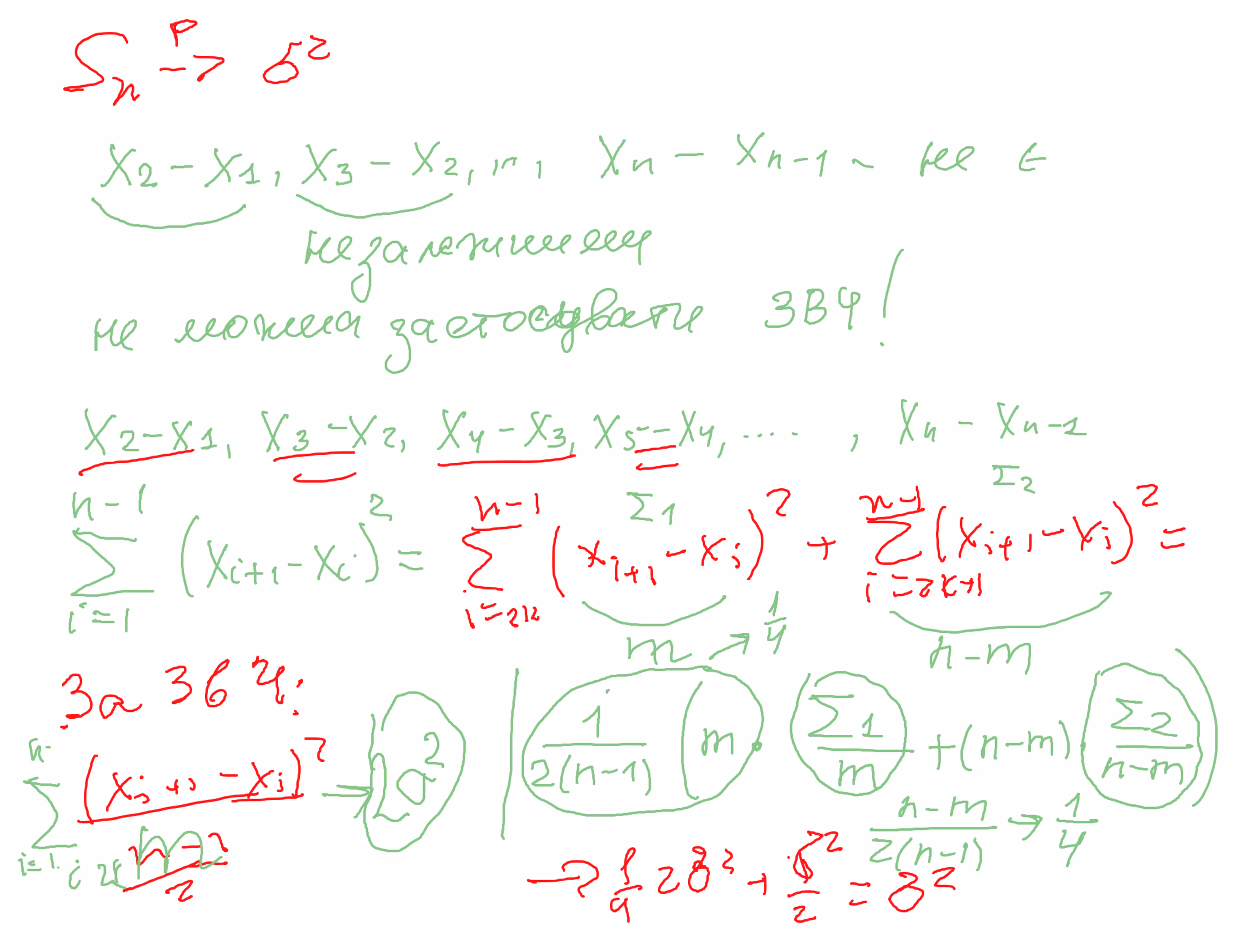 Sₙ →ᴾ σ²
X₂ − X₁, X₃ − X₂, ..., Xₙ − Xₙ₋₁ − не є
незалежними
не можна застосувати ЗВЧ!
X₂ − X₁, X₃ − X₂, X₄ − X₃, X₅ − X₄, ...., Xₙ − Xₙ₋₁
∑_{i=1}^{n−1} (X_{i+1} − X_i)² = ∑_{i=2k}^{n−1} (X_{i+1} − X_i)² + ∑_{i=2k+1}^{n−1} (X_{i+1} − X_i)² =
Σ₁ Σ₂
m → 1/4 n−m
За ЗВЧ:
(X_{i+1} − X_i)² → 2σ² | 1/(2(n−1)) (m · Σ₁/m + (n−m) · Σ₂/(n−m))
(n−m)/(2(n−1)) → 1/4
→ 1/4 2σ² + σ²/2 = σ²